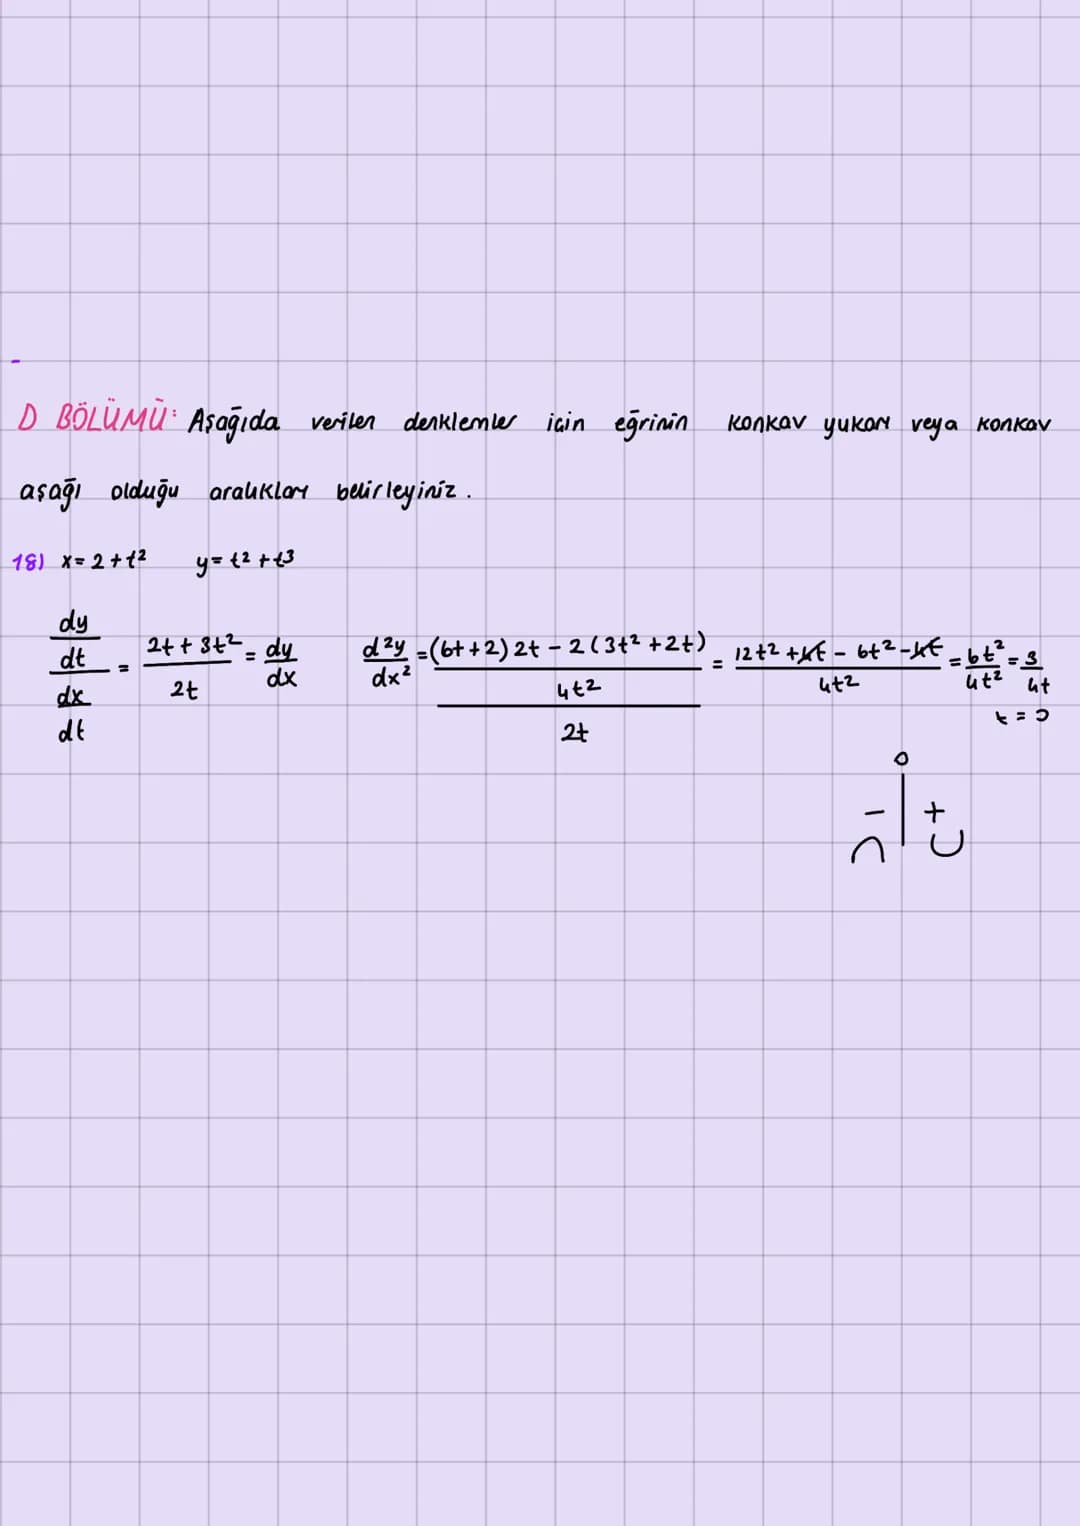 D BÖLÜMÜ: Aşağıda verilen denklemler için eğrinin konkav yukarı veya konkav
aşağı olduğu aralıkları belirleyiniz.
18) x = 2 + t² y = t² + t³
dy/dt / dx/dt = (2t + 3t²)/2t = dy/dx d²y/dx² = ((6t + 2) 2t - 2 (3t² + 2t))/4t² / 2t = (12t² + 4t - 6t² - 4t)/4t² = 6t²/4t² = 3/4t
t = 0
0
- | +